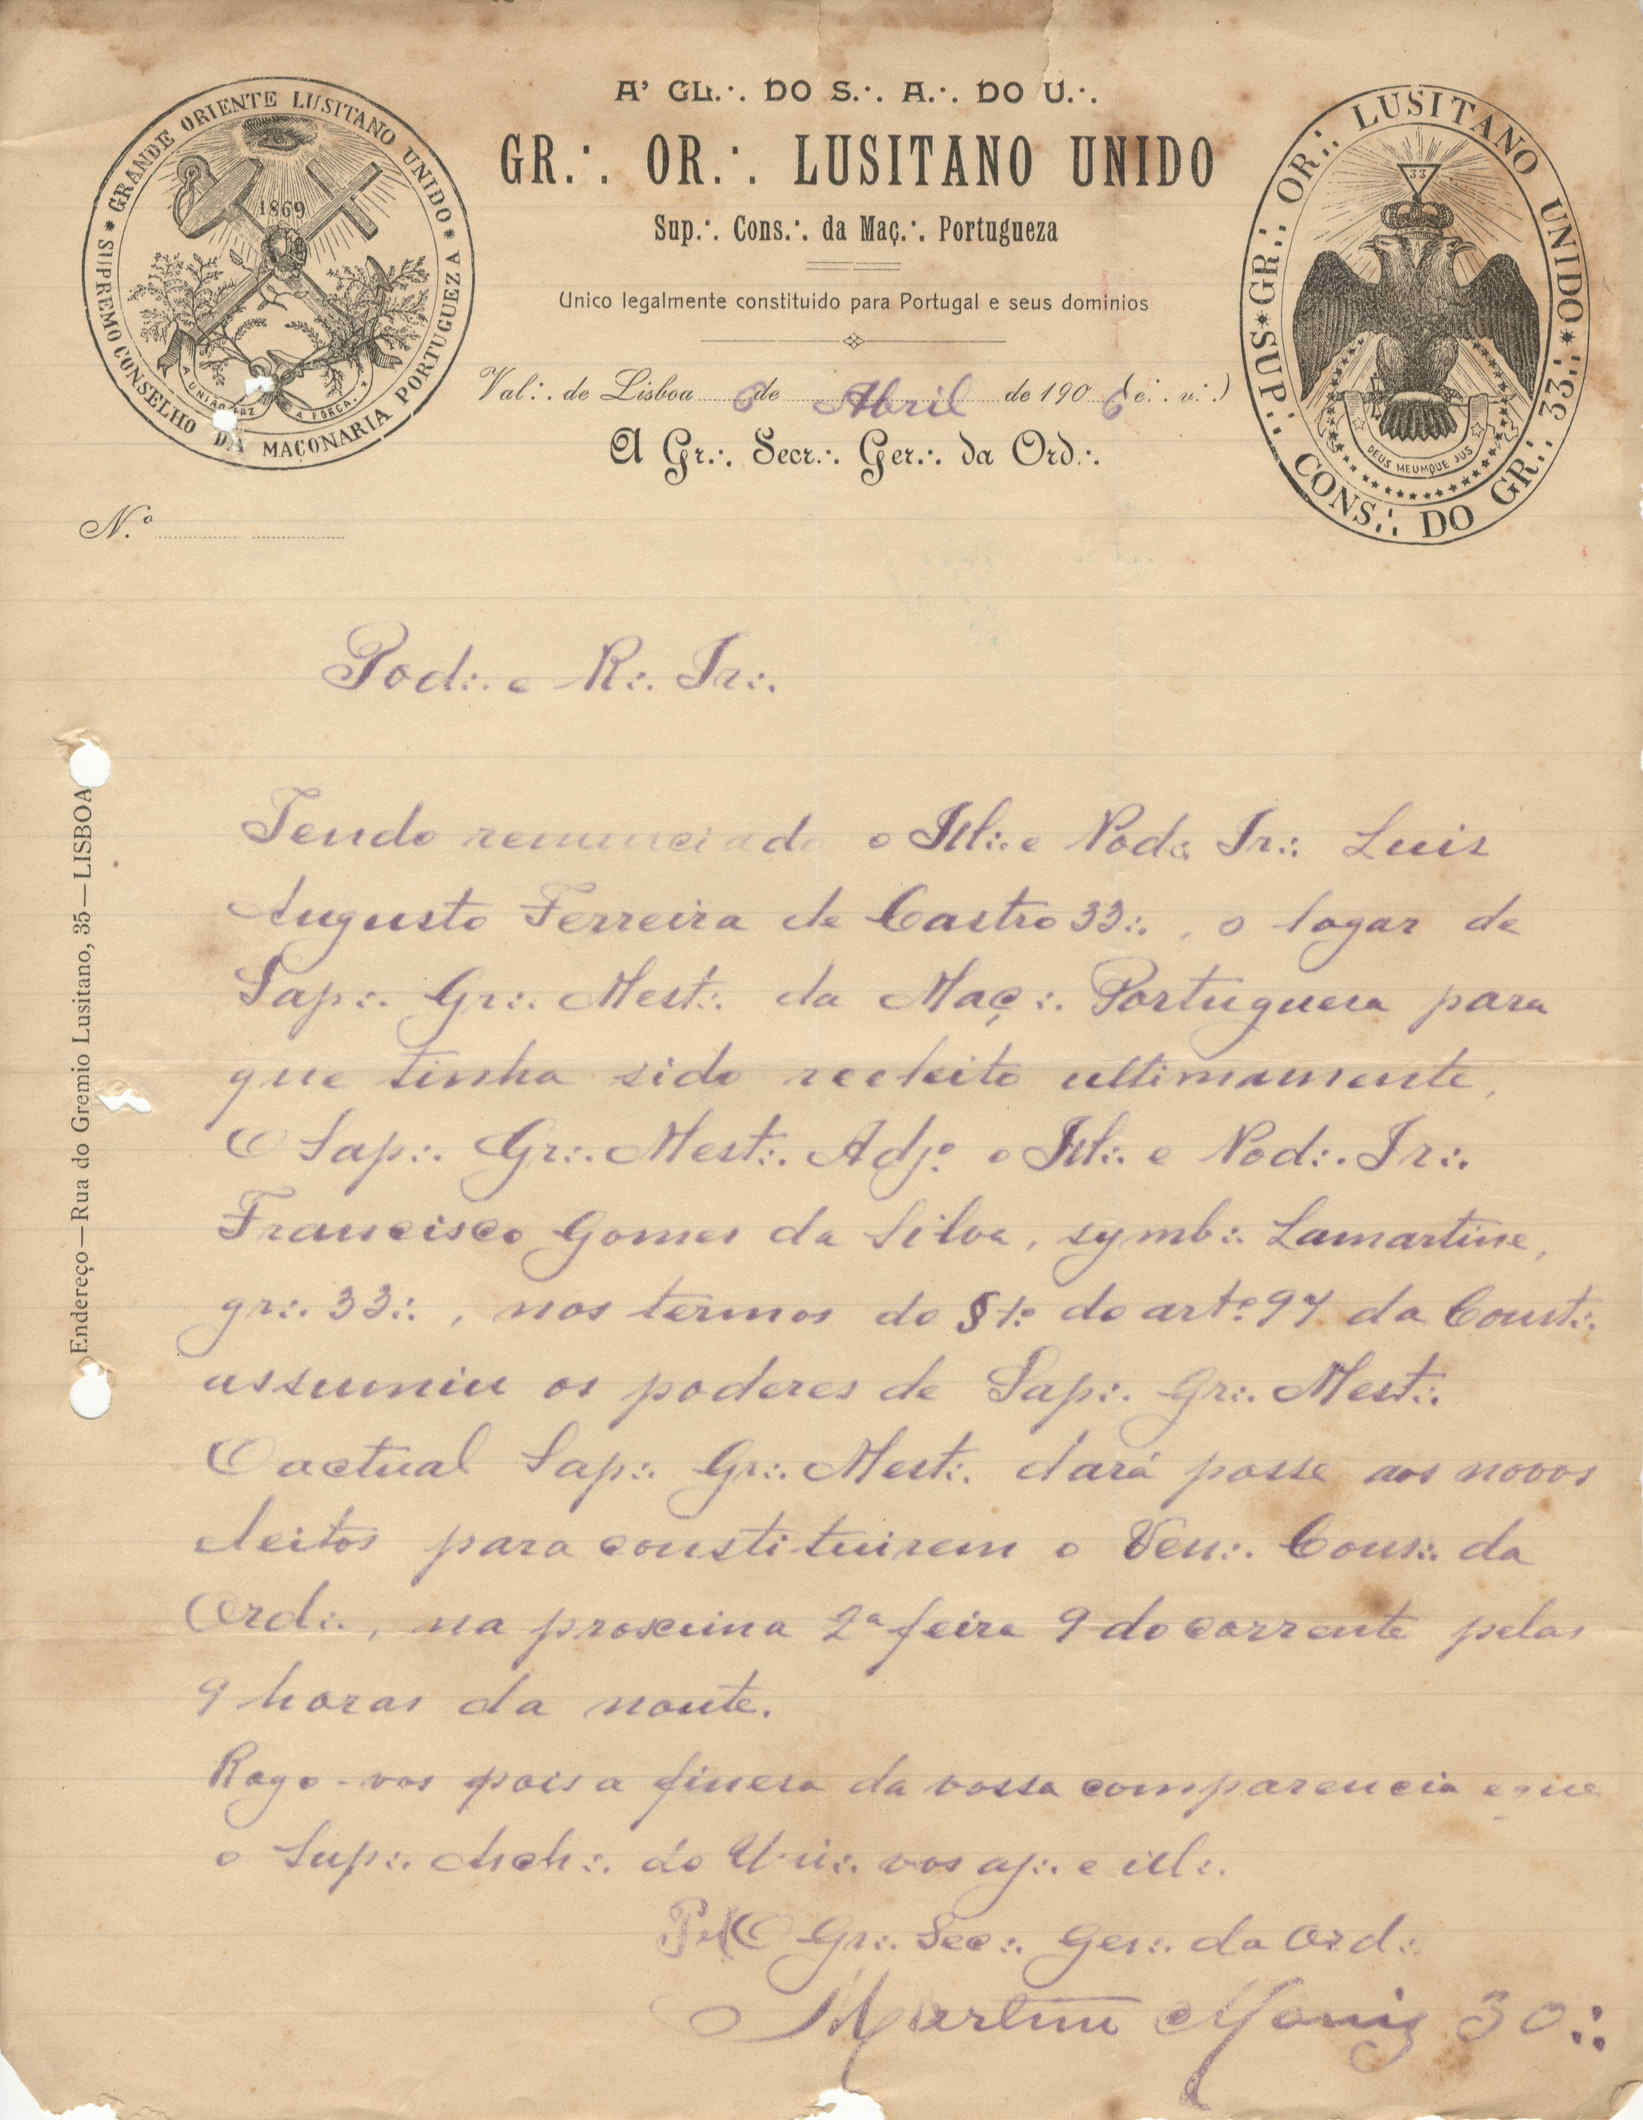 A' GL.·. DO S.·. A.·. DO U.·.
GR.·. OR.·. LUSITANO UNIDO
Sup.·. Cons.·. da Maç.·. Portugueza
Unico legalmente constituido para Portugal e seus dominios
Val.·. de Lisboa 6 de Abril de 1906 (e.·. v.·.)
A Gr.·. Secr.·. Ger.·. da Ord.·.
* GRANDE ORIENTE LUSITANO UNIDO *
SUPREMO CONSELHO DA MAÇONARIA PORTUGUEZA
1869
A UNIÃO FAZ A FORÇA.
* GR.·. OR.·. LUSITANO UNIDO *
SUP.·. CONS.·. DO GR.·. 33.·.
33
DEUS MEUMQUE JUS
N.º
Pod.·. e R.·. Ir.·.
Tendo renunciado o Ill.·. e Pod.·. Ir.·. Luis
Augusto Ferreira de Castro 33.·., o logar de
Sap.·. Gr.·. Mest.·. da Maç.·. Portugueza para
que tinha sido reeleito ultimamente,
O Sap.·. Gr.·. Mest.·. Adj.º o Ill.·. e Pod.·. Ir.·.
Francisco Gomes da Silva, symb.·. Lamartine,
gr.·. 33.·., nos termos do § 1.º do art.º 97 da Const.·.
assumiu os poderes de Sap.·. Gr.·. Mest.·.
O actual Sap.·. Gr.·. Mest.·. dará posse aos novos
eleitos para constituirem o Ven.·. Cons.·. da
Ord.·., na proxima 2ª feira 9 do corrente pelas
9 horas da noute.
Rogo-vos pois a fineza da vossa comparencia e que
o Sup.·. Arch.·. do Uni.·. vos aj.·. e ill.·.
O Gr.·. Sec.·. Ger.·. da Ord.·.
Martim Moniz 30.·.
Endereço—Rua do Gremio Lusitano, 35—LISBOA